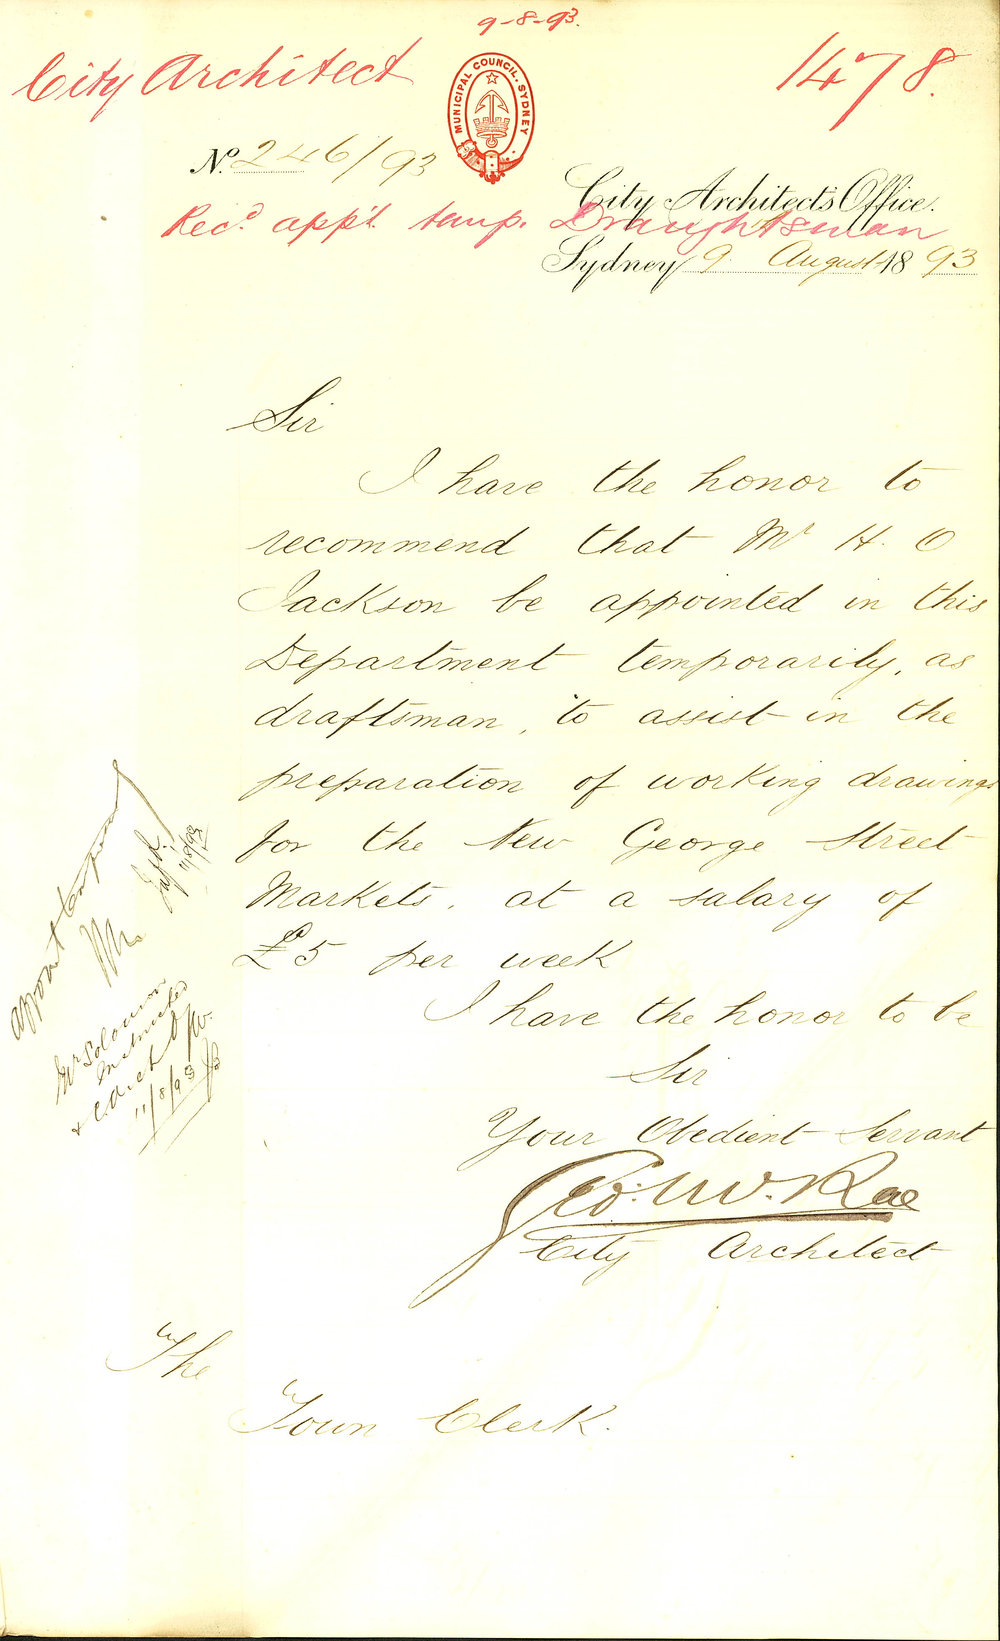 9-8-93.
City Architect
1478.
MUNICIPAL COUNCIL. SYDNEY
No. 246/93
City Architect's Office.
Recd. appt. temp. Draughtsman
Sydney 9 August 1893
Sir
I have the honor to
recommend that Mr H. O
Jackson be appointed in this
Department temporarily, as
draftsman, to assist in the
preparation of working drawings
for the New George Street
Markets, at a salary of
£5 per week
I have the honor to be
Sir
Your Obedient Servant
Geo: McRae
City Architect
The
Town Clerk.
appoint
11/8/93
Mr Solomon
instructed
11/8/93